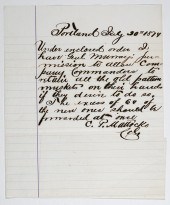 Portland July 30th 1874
Under enclosed order I
have Genl Murray's per-
mission to allow Com
pany Commanders to
retain all the old pattern
muskets on their hands
if they desire to do so.
The excess of 60 of
the new ones should be
forwarded at once.
C. P. Mattocks
Col